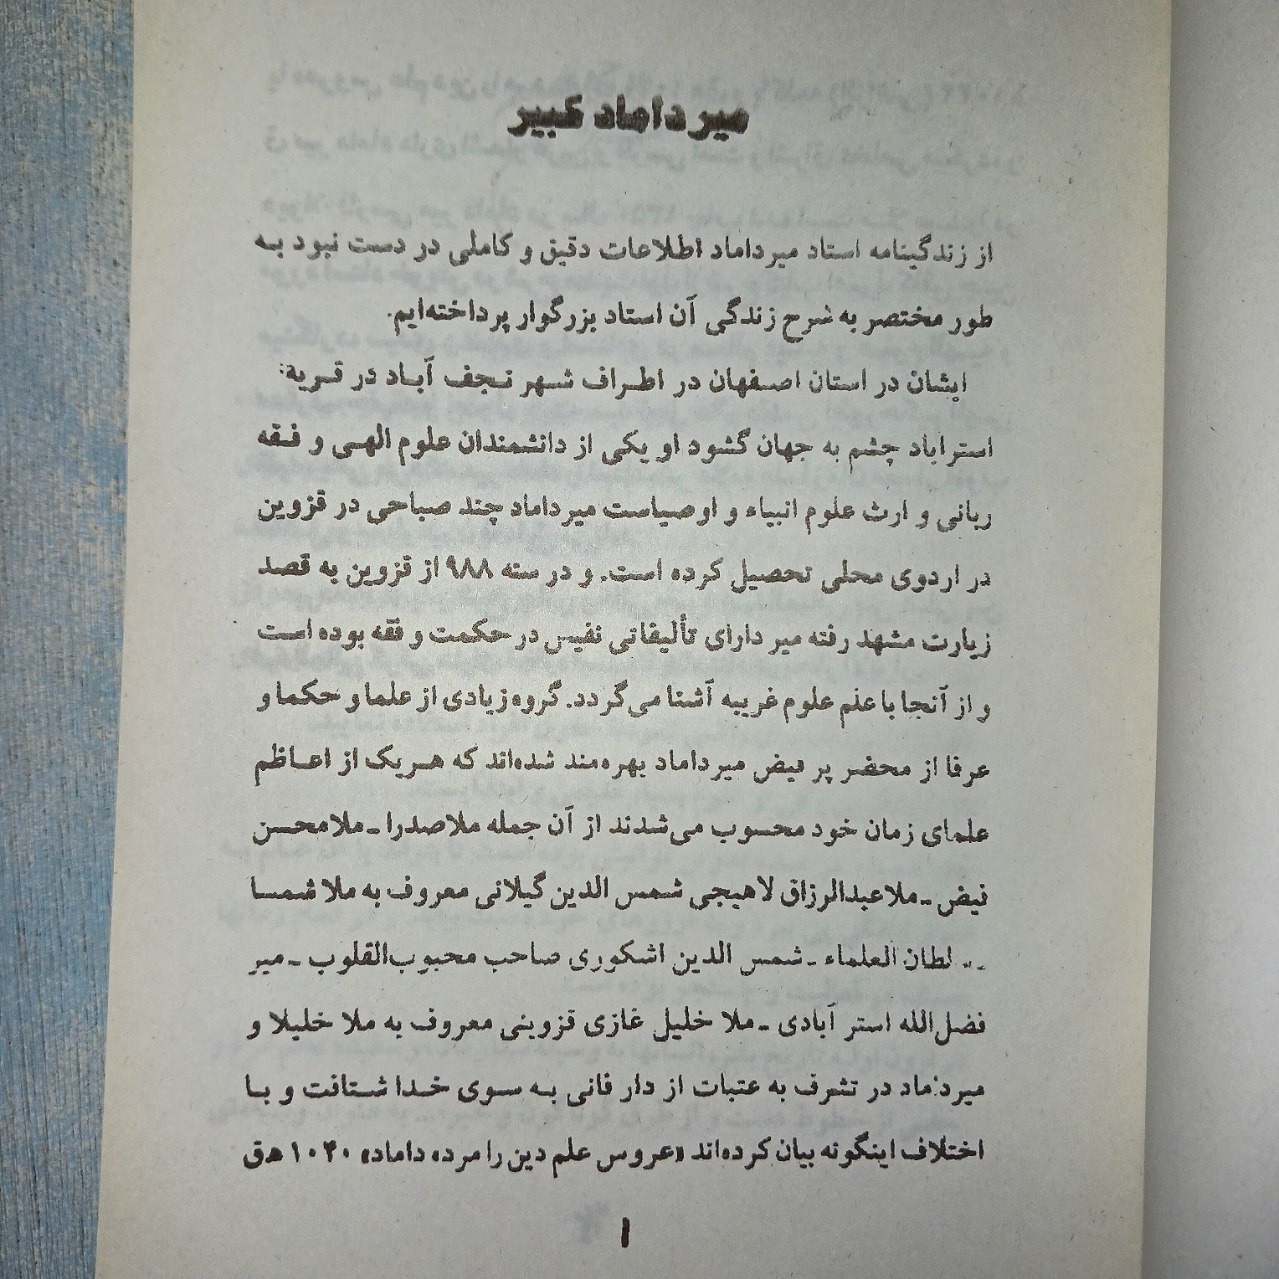 میرداماد کبیر
از زندگینامه استاد میرداماد اطلاعات دقیق و کاملی در دست نبود به
طور مختصر به شرح زندگی آن استاد بزرگوار پرداخته‌ایم.
ایشان در استان اصفهان در اطراف شهر نجف آباد در قریه
استراباد چشم به جهان گشود او یکی از دانشمندان علوم الهی و فقه
ربانی و ارث علوم انبیاء و اوصیاست میرداماد چند صباحی در قزوین
در اردوی محلی تحصیل کرده است. و در سنه ۹۸۸ از قزوین به قصد
زیارت مشهد رفته میر دارای تألیفاتی نفیس در حکمت و فقه بوده است
و از آنجا با علم علوم غریبه آشنا می‌گردد. گروه زیادی از علما و حکما و
عرفا از محضر پر فیض میرداماد بهره‌مند شده‌اند که هریک از اعاظم
علمای زمان خود محسوب می‌شدند از آن جمله ملاصدرا ـ ملامحسن
فیض ـ ملاعبدالرزاق لاهیجی شمس الدین گیلانی معروف به ملا شمسا
لطان العلماء ـ شمس الدین اشکوری صاحب محبوب‌القلوب ـ میر
فضل‌الله استر آبادی ـ ملا خلیل غازی قزوینی معروف به ملا خلیلا و
میرداماد در تشرف به عتبات از دار فانی به سوی خدا شتافت و با
اختلاف اینگونه بیان کرده‌اند «عروس علم دین را مرده داماد» ۱۰۴۰ هـق
۱